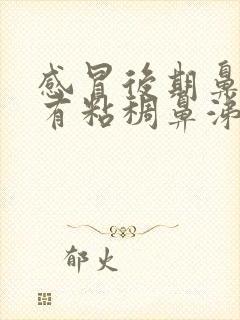 感冒後期鼻
有粘稠鼻涕
郁火